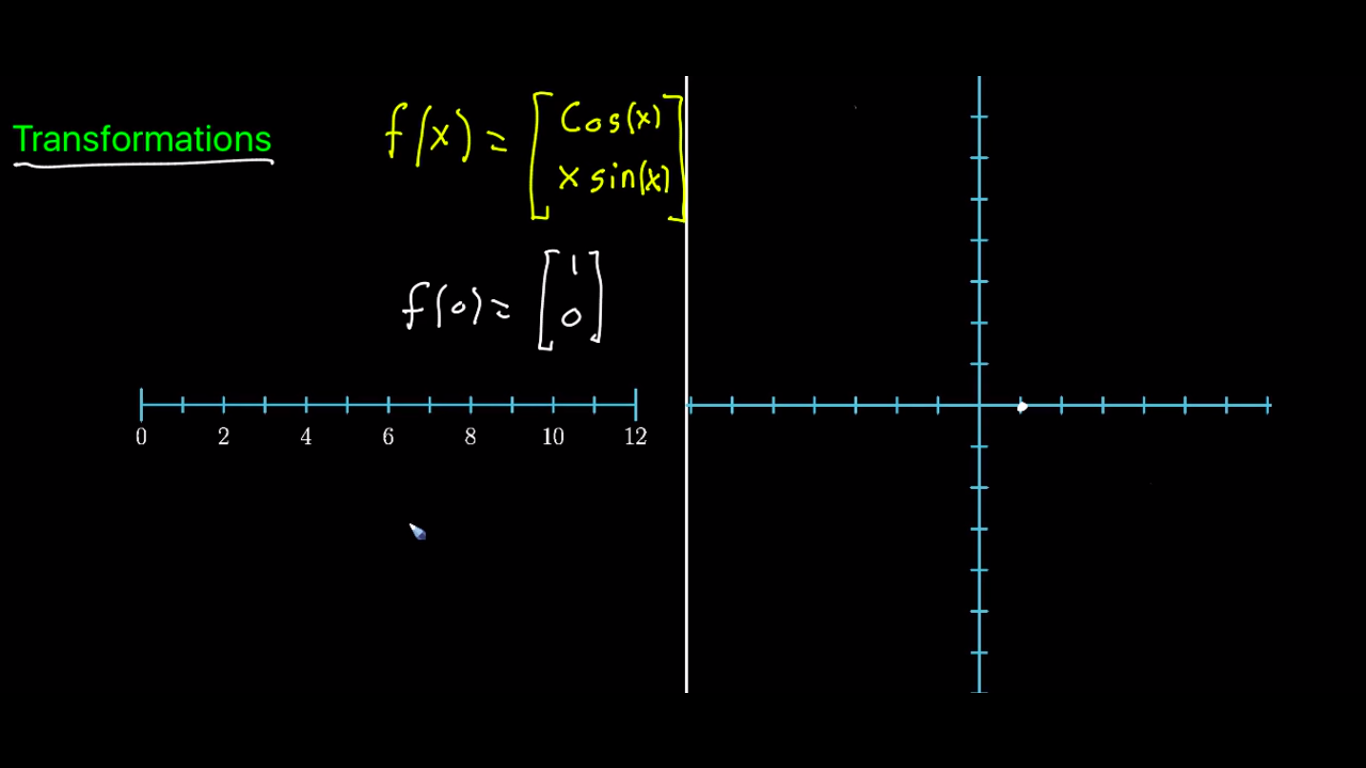 Transformations
f(x) = [Cos(x)
x sin(x)]
f(0) = [1
0]
0 2 4 6 8 10 12